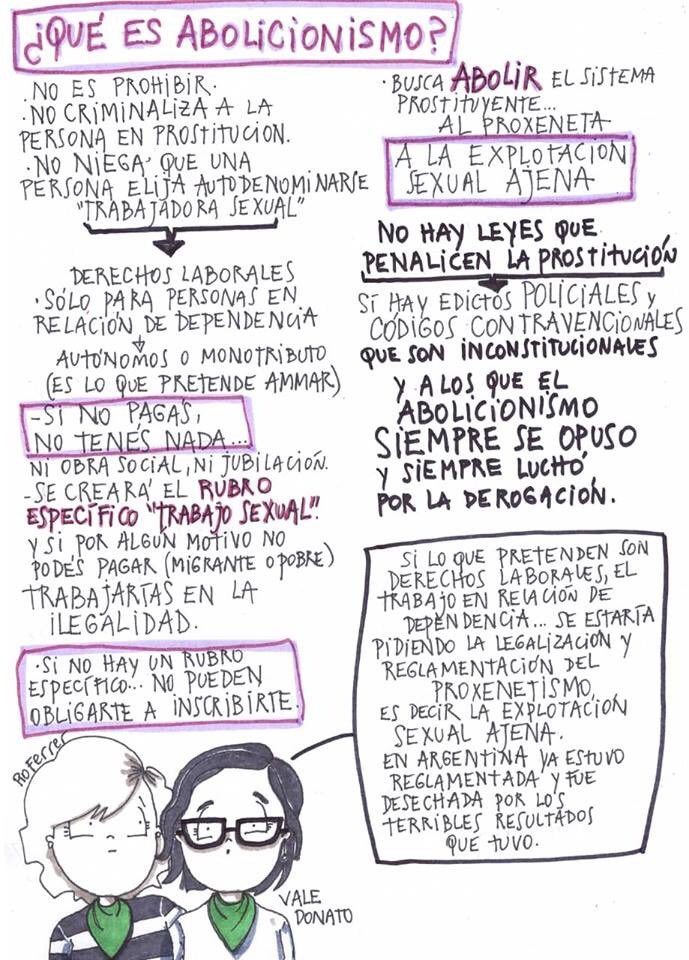 ¿QUÉ ES ABOLICIONISMO?
. NO ES PROHIBIR.
. NO CRIMINALIZA A LA
PERSONA EN PROSTITUCION.
. NO NIEGA QUE UNA
PERSONA ELIJA AUTODENOMINARSE
"TRABAJADORA SEXUAL"
DERECHOS LABORALES
. SÓLO PARA PERSONAS EN
RELACIÓN DE DEPENDENCIA
AUTÓNOMOS O MONOTRIBUTO
(ES LO QUE PRETENDE AMMAR)
- SI NO PAGÁS,
NO TENÉS NADA...
NI OBRA SOCIAL, NI JUBILACIÓN.
- SE CREARÁ EL RUBRO
ESPECÍFICO "TRABAJO SEXUAL".
Y SI POR ALGÚN MOTIVO NO
PODÉS PAGAR (MIGRANTE O POBRE)
TRABAJARÍAS EN LA
ILEGALIDAD.
. SI NO HAY UN RUBRO
ESPECÍFICO... NO PUEDEN
OBLIGARTE A INSCRIBIRTE.
. BUSCA ABOLIR EL SISTEMA
PROSTITUYENTE...
AL PROXENETA
A LA EXPLOTACION
SEXUAL AJENA
NO HAY LEYES QUE
PENALICEN LA PROSTITUCIÓN
SI HAY EDICTOS POLICIALES Y
CÓDIGOS CONTRAVENCIONALES
QUE SON INCONSTITUCIONALES
Y A LOS QUE EL
ABOLICIONISMO
SIEMPRE SE OPUSO
Y SIEMPRE LUCHÓ
POR LA DEROGACIÓN.
SI LO QUE PRETENDEN SON
DERECHOS LABORALES, EL
TRABAJO EN RELACIÓN DE
DEPENDENCIA... SE ESTARÍA
PIDIENDO LA LEGALIZACIÓN Y
REGLAMENTACIÓN DEL
PROXENETISMO,
ES DECIR LA EXPLOTACION
SEXUAL AJENA.
EN ARGENTINA YA ESTUVO
REGLAMENTADA Y FUE
DESECHADA POR LOS
TERRIBLES RESULTADOS
QUE TUVO.
Ro Ferrer
VALE
DONATO